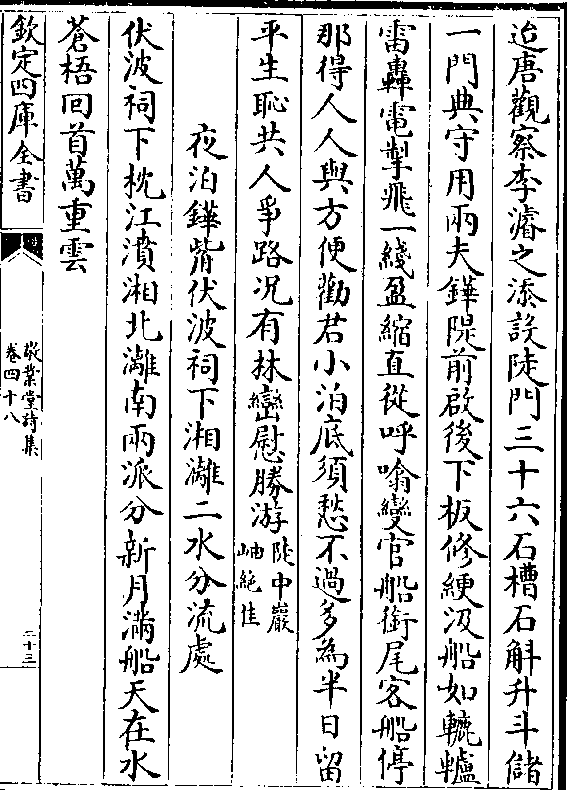 迨唐觀察李濬之添設陡門三十六石槽石斛升斗儲
一門典守用兩夫鏵隄前啟後下板修綆汲船如轆轤
雷轟電掣飛一綫盈縮直從呼噏變官船銜尾客船停
那得人人與方便勸君小泊底須愁不過多為半日留
平生恥共人爭路況有林巒慰勝游陡中巖
岫絶佳
夜泊鏵觜伏波祠下湘灕二水分流處
伏波祠下枕江濆湘北灕南兩派分新月滿船天在水
蒼梧回首萬重雲
欽定四庫全書
敬業堂詩集
卷四十八
二十三